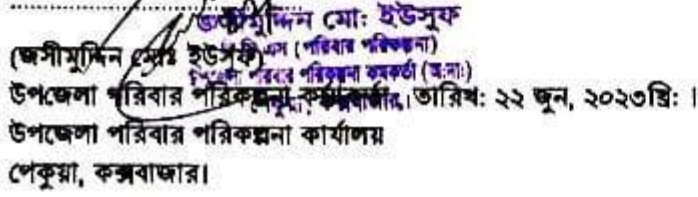 জসীমুদ্দিন মো: ইউসুফ
(পরিবার পরিকল্পনা)
(জসীমুদ্দিন মোঃ ইউসুফ)
পরিবার পরিকল্পনা কর্মকর্তা (অ:দা:)
উপজেলা পরিবার পরিকল্পনা কর্মকর্তা, তারিখ: ২২ জুন, ২০২৩খ্রি: ।
উপজেলা পরিবার পরিকল্পনা কার্যালয়
পেকুয়া, কক্সবাজার।